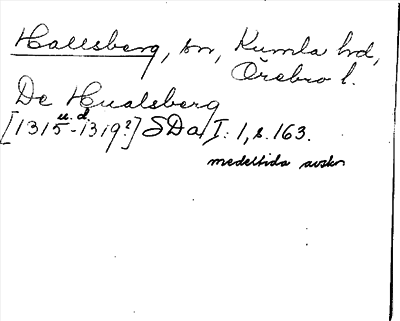 Hallsberg, sn, Kumla hd,
Örebro l.
De Hualsberg
u. d.
[1315-1319?] SDa I: 1, s. 163.
medeltida avskr